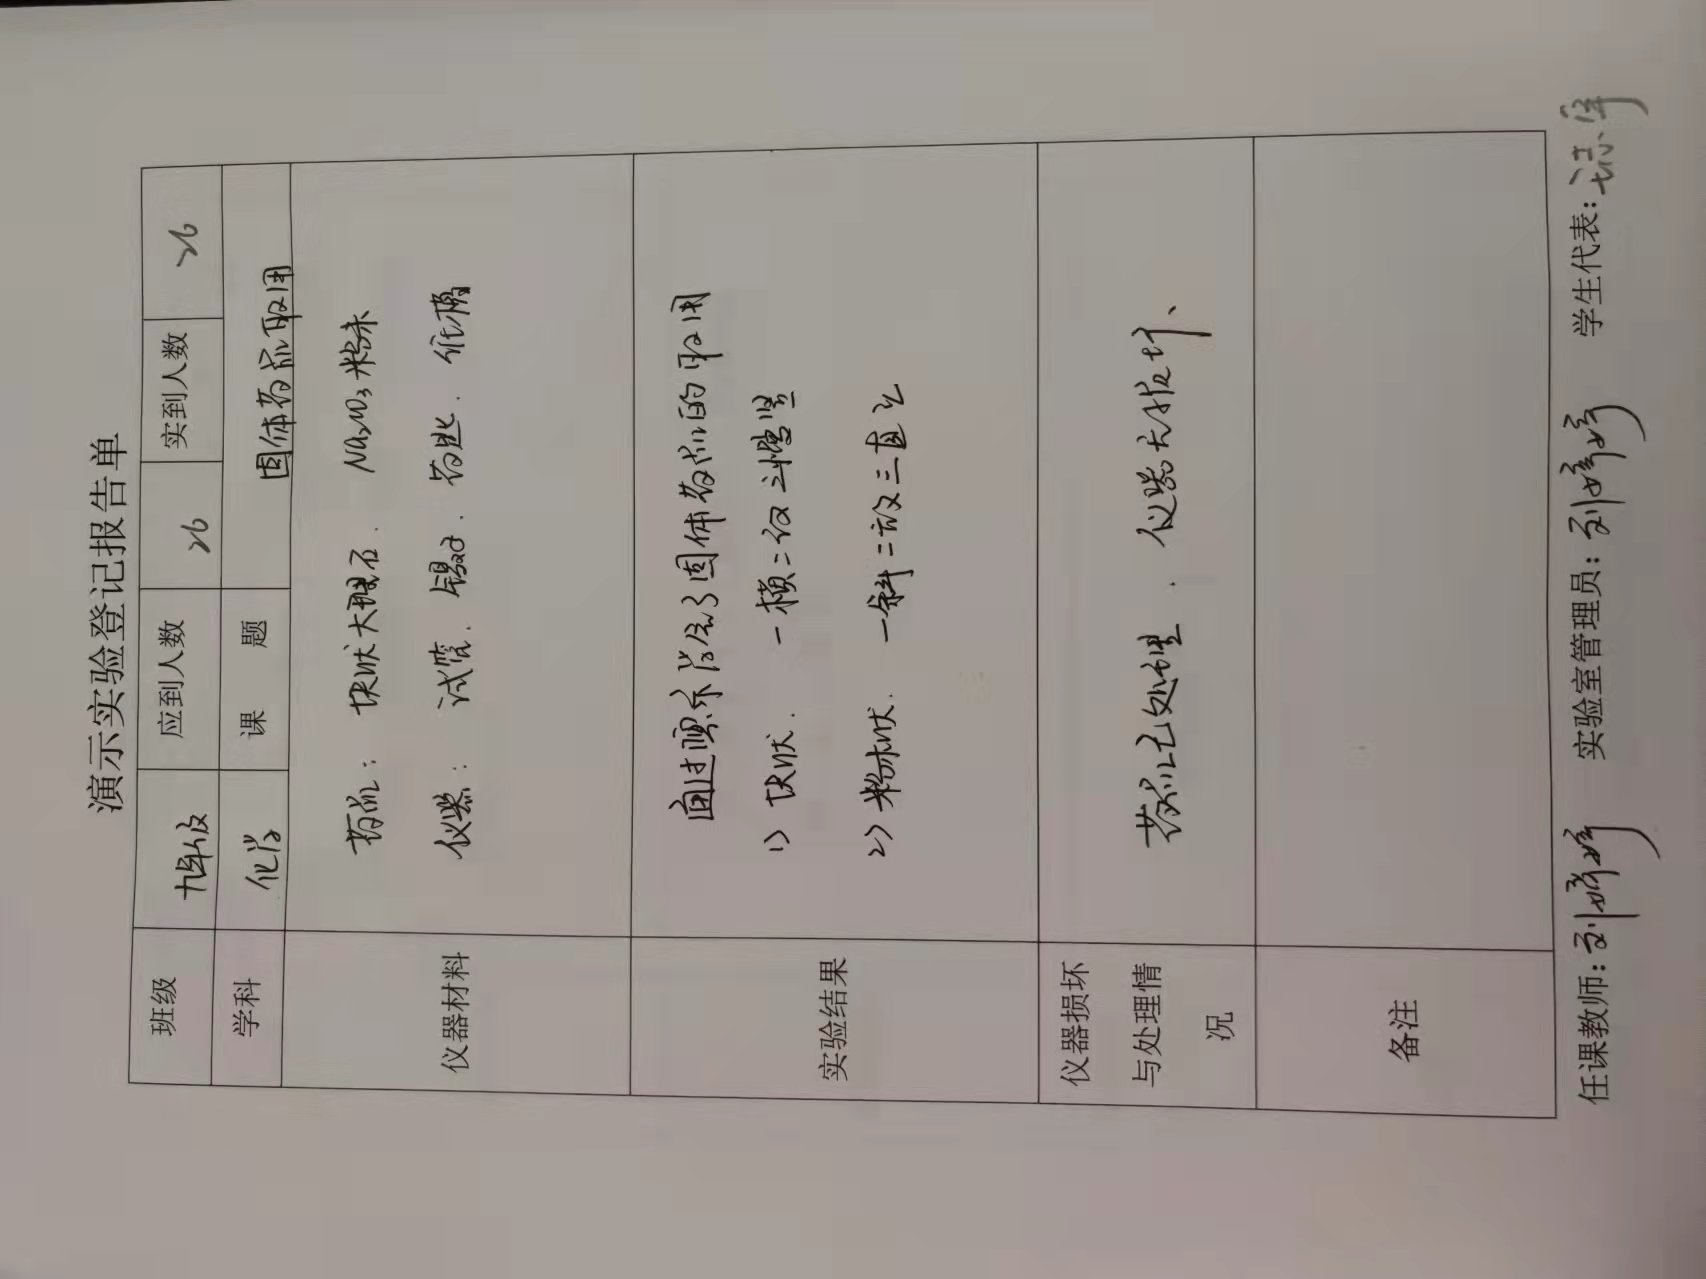 演示实验登记报告单
班级 九年级 应到人数 26 实到人数 26
学科 化学 课题 固体药品取用
仪器材料
药品: 块状大理石. Na2CO3粉末
仪器: 试管. 镊子. 药匙. 纸槽
实验结果
通过演示学会了固体药品的取用
1) 块状. 一横二放三慢竖
2) 粉末状. 一斜二放三直立
仪器损坏与处理情况
药品已处理. 仪器无损坏、
备注
任课教师: 刘婷婷 实验室管理员: 刘婷婷 学生代表: